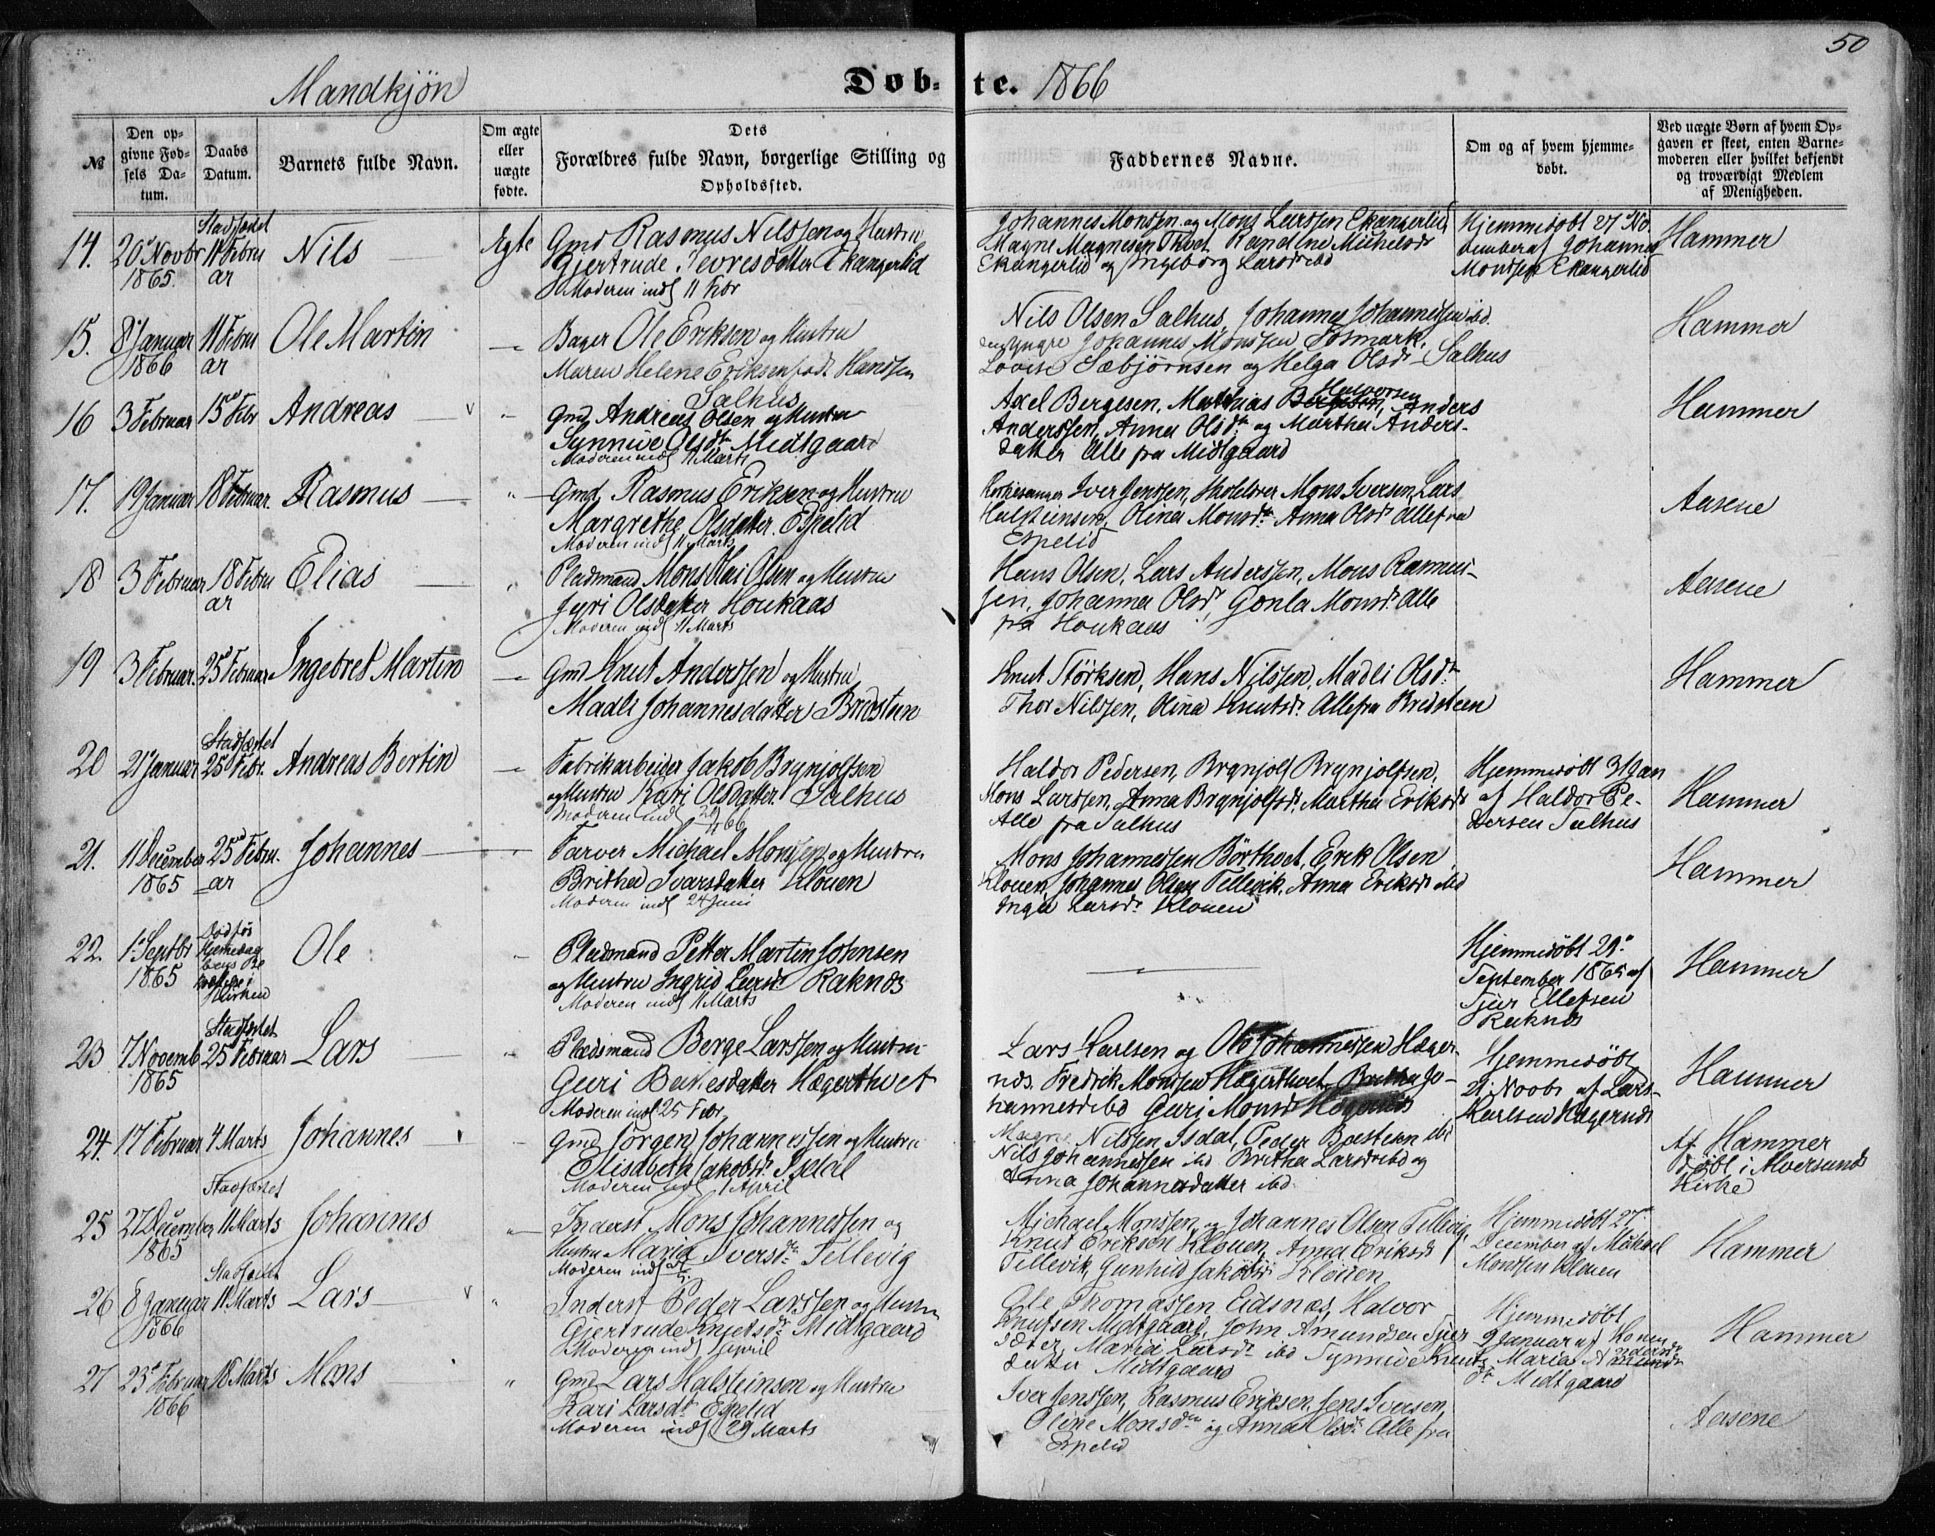 50
Mandkjøn
Døb-te. 1866
№
Den opgivne Fødsels Datum.
Daabs Datum.
Barnets fulde Navn.
Om ægte eller uægte fødte.
Dets Forældres fulde Navn, borgerlige Stilling og Opholdssted.
Faddernes Navne.
Om og af hvem hjemmedøbt.
Ved uægte Børn af hvem Opgaven er skeet, enten Barnemoderen eller hvilket bekjendt og troværdigt Medlem af Menigheden.
14. 20 Novbr 1865. Stadfæstet 11 Februar Nils Ægte
Gmd Rasmus Nilssen og Hustru
Gjertrude Iversdotter Ekangerlid
Moderen indl 11 Febr
Johannes Monsen og Mons Larssen Ekangerlid,
Magne Magnesen
Ekangerlid og Ingeborg Larsd ibd
Hjemmedøbt 27 November af Johannes
Monssen Ekangerlid
Hammer
15. 8 Januar 1866 11 Februar Ole Martin
Bager Ole Eriksen og Hustru
Maren Helene Eriksen født Handsen
Salhus
Nils Olsen Salhus, Johannes Johannessen ibd.
den yngre Johannes Monssen Fosmark,
Lovise Sæbjørnsen og Helga Olsdr Salhus
Hammer
16 3 Februar 15 Febr Andreas
Gmd Andreas Olsen og Hustru
Synnive Olsdtr Midtgaard
Moderen indl 11 Marts
Adel Bergesen, Mathias Halvorsen, Anders
Anderssen, Anna Olsdtr og Martha Andersdatter Alle fra Midtgaard
Hammer
17. 19 Januar 18 Februar. Rasmus
Gmd Rasmus Eriksen og Hustru
Margrethe Olsdatter Espelid
Moderen indl 11 Marts
Kirkesanger Iver Jenssen, Skoleholder Mons Iversen, Lars
Halsteinsen, Olina Monsdr. Anna Olsdr Alle fra
Espelid
Aasene
18 3 Februar 18 Februar Elias
Pladsmand Mons Olsen og Hustru
Jyri Olsdatter Houkaas
Moderen indl 11 Marts
Hans Olsen, Lars Anderssen, Mons Rasmussen, Johanna Olsdr, Gonla Monsdr. Alle
fra Houkaas
Aasene
19 3 Februar. 25 Februar Ingebret Martin
Gmd Knut Anderssen og Hustru
Madli Johannesdatter Bridstein
Knut Størksen, Hans Nilssen, Madli Olsdr
Thor Nilssen, Olina Knutsdr. Alle fra Bridsteen
Hammer
20 21 Januar Stadfæstet 25 Febr. Andreas Bertin
Fabrikarbeider Jakob Brynjolfsen
og Hustru Kari Olsdatter Salhus
Moderen indl
Haldor Pedersen, Brynjolf Brynjolfsen,
Mons Larssen, Anna Brynjolfsdr. Martha Eriksdr
Alle fra Salhus
Hjemmedøbt 31 Jan
af Haldor Pedersen Salhus
Hammer
21. 11 December 1865 25 Februar Johannes
Farver Michael Monssen og Hustru
Britha Ivarsdatter Klouen
Moderen indl 24 Juni
Mons Johannessen Børthvet, Erik Olsen
Klouen, Johannes Olsen Tellevik, Anna Eriksdr ibd
Inga Larsdr Klouen
Hammer
22. 1 Septbr 1865 Ole
Pladsmand Petter Martin Johnsen
og Hustru Ingrid Larsdr Raknes
Moderen indl 11 Marts
Hjemmedøbt 21
September 1865 af
Sjur Ellefsen
Raknes
Hammer
23 7 Novemb 1865 Stadfæstet 25 Februar Lars
Pladsmand Berge Larssen og Hustru
Guri Bakesdatter Hægerthvet
Moderen indl 25 Febr
Lars Karlsen og Ole Johannessen Hægernds. Fredrik Monssen Hægerthvet, Britha Johannesd ibd Guri Monsd Hægernds
Hjemmedøbt
21 Novbr af Lars
Karlsen Hægernds
Hammer
24. 17 Februar 4 Marts Johannes
Gmd Jørgen Johannessen og Hustru
Elisabeth Jakobsdr Isdal
Moderen indl 1 April
Magne Nilssen Isdal, Peder ibd
Nils Johannessen ibd Britha Larsdr ibd og
Anna Johannesdatter ibd
Af Hammer
døbt i Alversunds
Kirke
25 27 December 1865 Stadfæstet 11 Marts Johannes
Inderst Mons Johannessen og
Hustru Maria Iversdr Tellevig
Moderen indl
Michael Monssen, og Johannes Olsen Tellevig,
Knut Eriksen Klouen, Anna Eriksdr
Tellevik, Gunhild Jakobsdr Klouen
Hjemmedøbt 27
December af Michael
Monssen Klouen
Hammer
26 8 Januar 1866 Stadfæstet 11 Marts Lars
Inderst Peder Larssen og Hustru
Gjertrude Knutsdr Midtgaard
Moderen indl 1 April
Ole Thomassen Eidsnæs, Halvor
Knutsen Midtgaard, John Amundsen
Maria Larsdr ibd Synnive Knutsdatter Midtgaard
Hjemmedøbt
9 Januar af Konen
Maria
Midtgaard
Hammer
27 23 Februar 1866 18 Marts Mons
Gmd Lars Halsteinson og Hustru
Kari Larsdr Espelid
Moderen indl 29 Marts
Iver Jenssen, Rasmus Eriksen, Jens Iversen,
Oline Monsdr og Anna Olsdr Alle fra
Espelid
Aasene